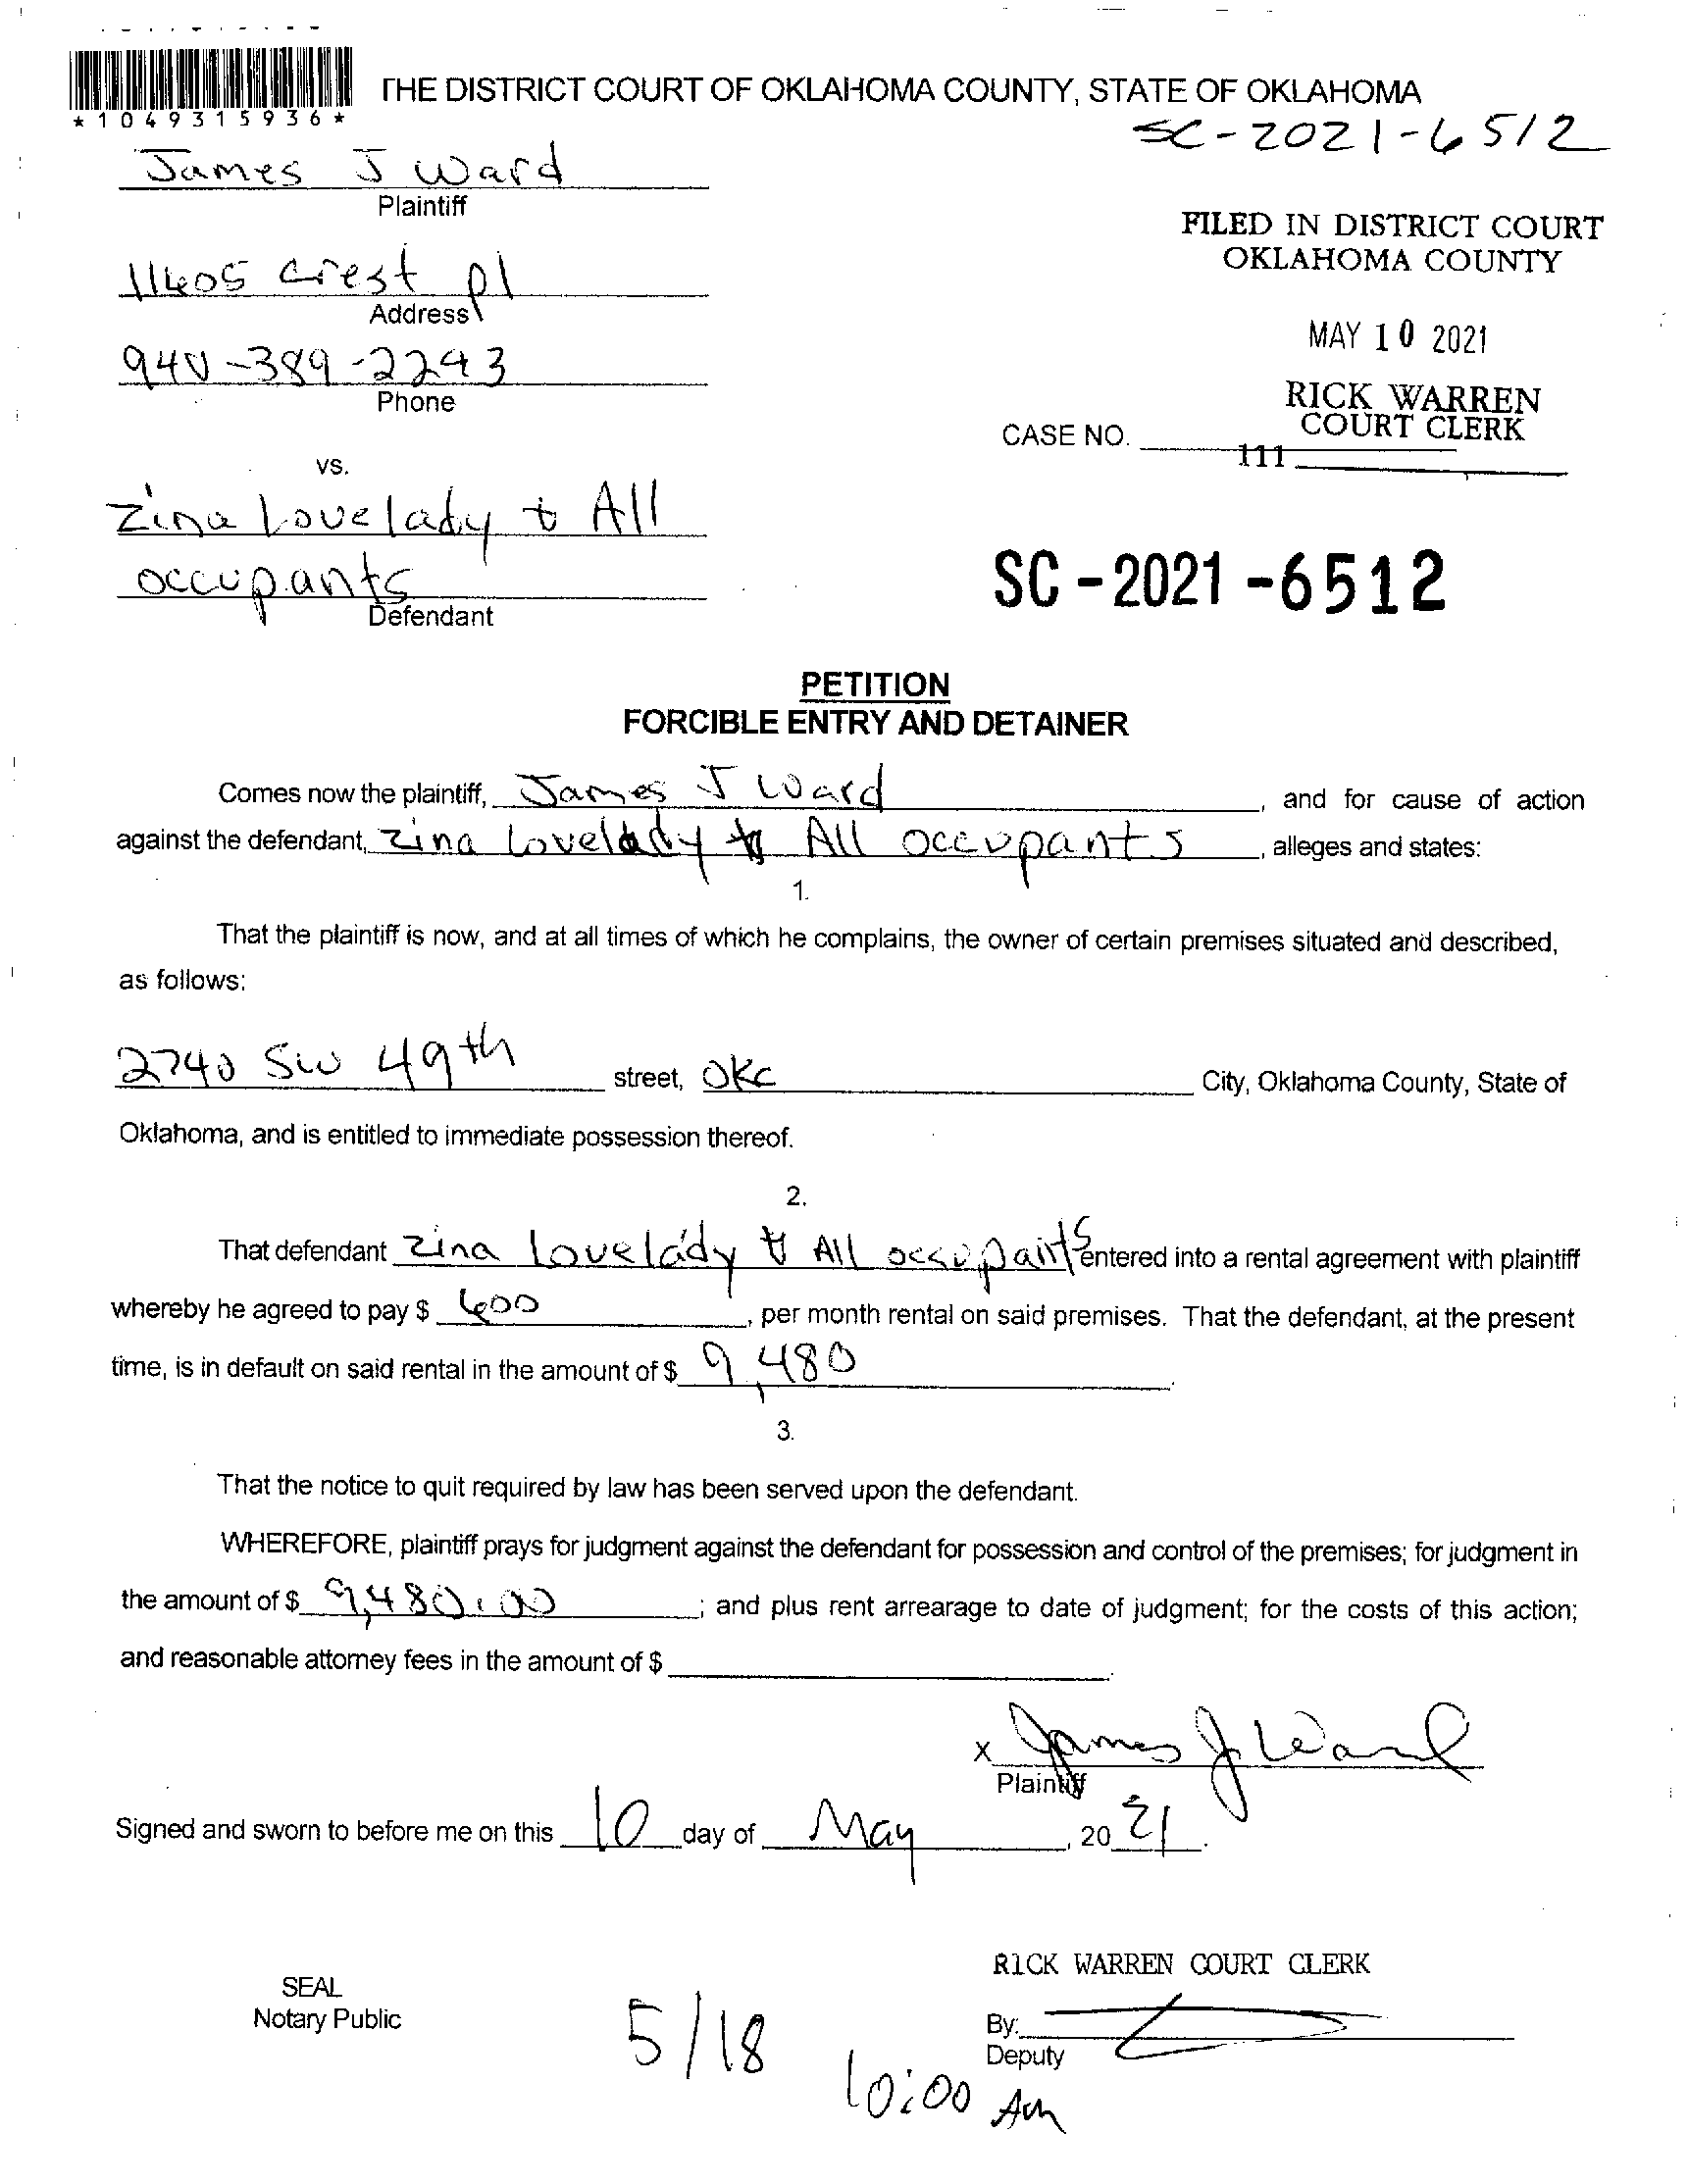 *1049315936*
THE DISTRICT COURT OF OKLAHOMA COUNTY, STATE OF OKLAHOMA
SC-2021-6512
James J Ward
Plaintiff
FILED IN DISTRICT COURT
OKLAHOMA COUNTY
11605 Crest pl
Address
MAY 10 2021
940-389-2293
Phone
RICK WARREN
COURT CLERK
CASE NO.
111
vs.
Zina Lovelady & All
occupants
Defendant
SC-2021-6512
PETITION
FORCIBLE ENTRY AND DETAINER
Comes now the plaintiff, James J Ward, and for cause of action
against the defendant, Zina Lovelady & All occupants, alleges and states:
1.
That the plaintiff is now, and at all times of which he complains, the owner of certain premises situated and described,
as follows:
2740 SW 49th street, OKC City, Oklahoma County, State of
Oklahoma, and is entitled to immediate possession thereof.
2.
That defendant Zina Lovelady & All occupants entered into a rental agreement with plaintiff
whereby he agreed to pay $ 600, per month rental on said premises. That the defendant, at the present
time, is in default on said rental in the amount of $ 9,480.
3.
That the notice to quit required by law has been served upon the defendant.
WHEREFORE, plaintiff prays for judgment against the defendant for possession and control of the premises; for judgment in
the amount of $ 9,480.00; and plus rent arrearage to date of judgment; for the costs of this action;
and reasonable attorney fees in the amount of $
x James J Ward
Plaintiff
Signed and sworn to before me on this 10 day of May, 2021.
RICK WARREN COURT CLERK
SEAL
Notary Public
By:
Deputy
5/18
10:00 Am